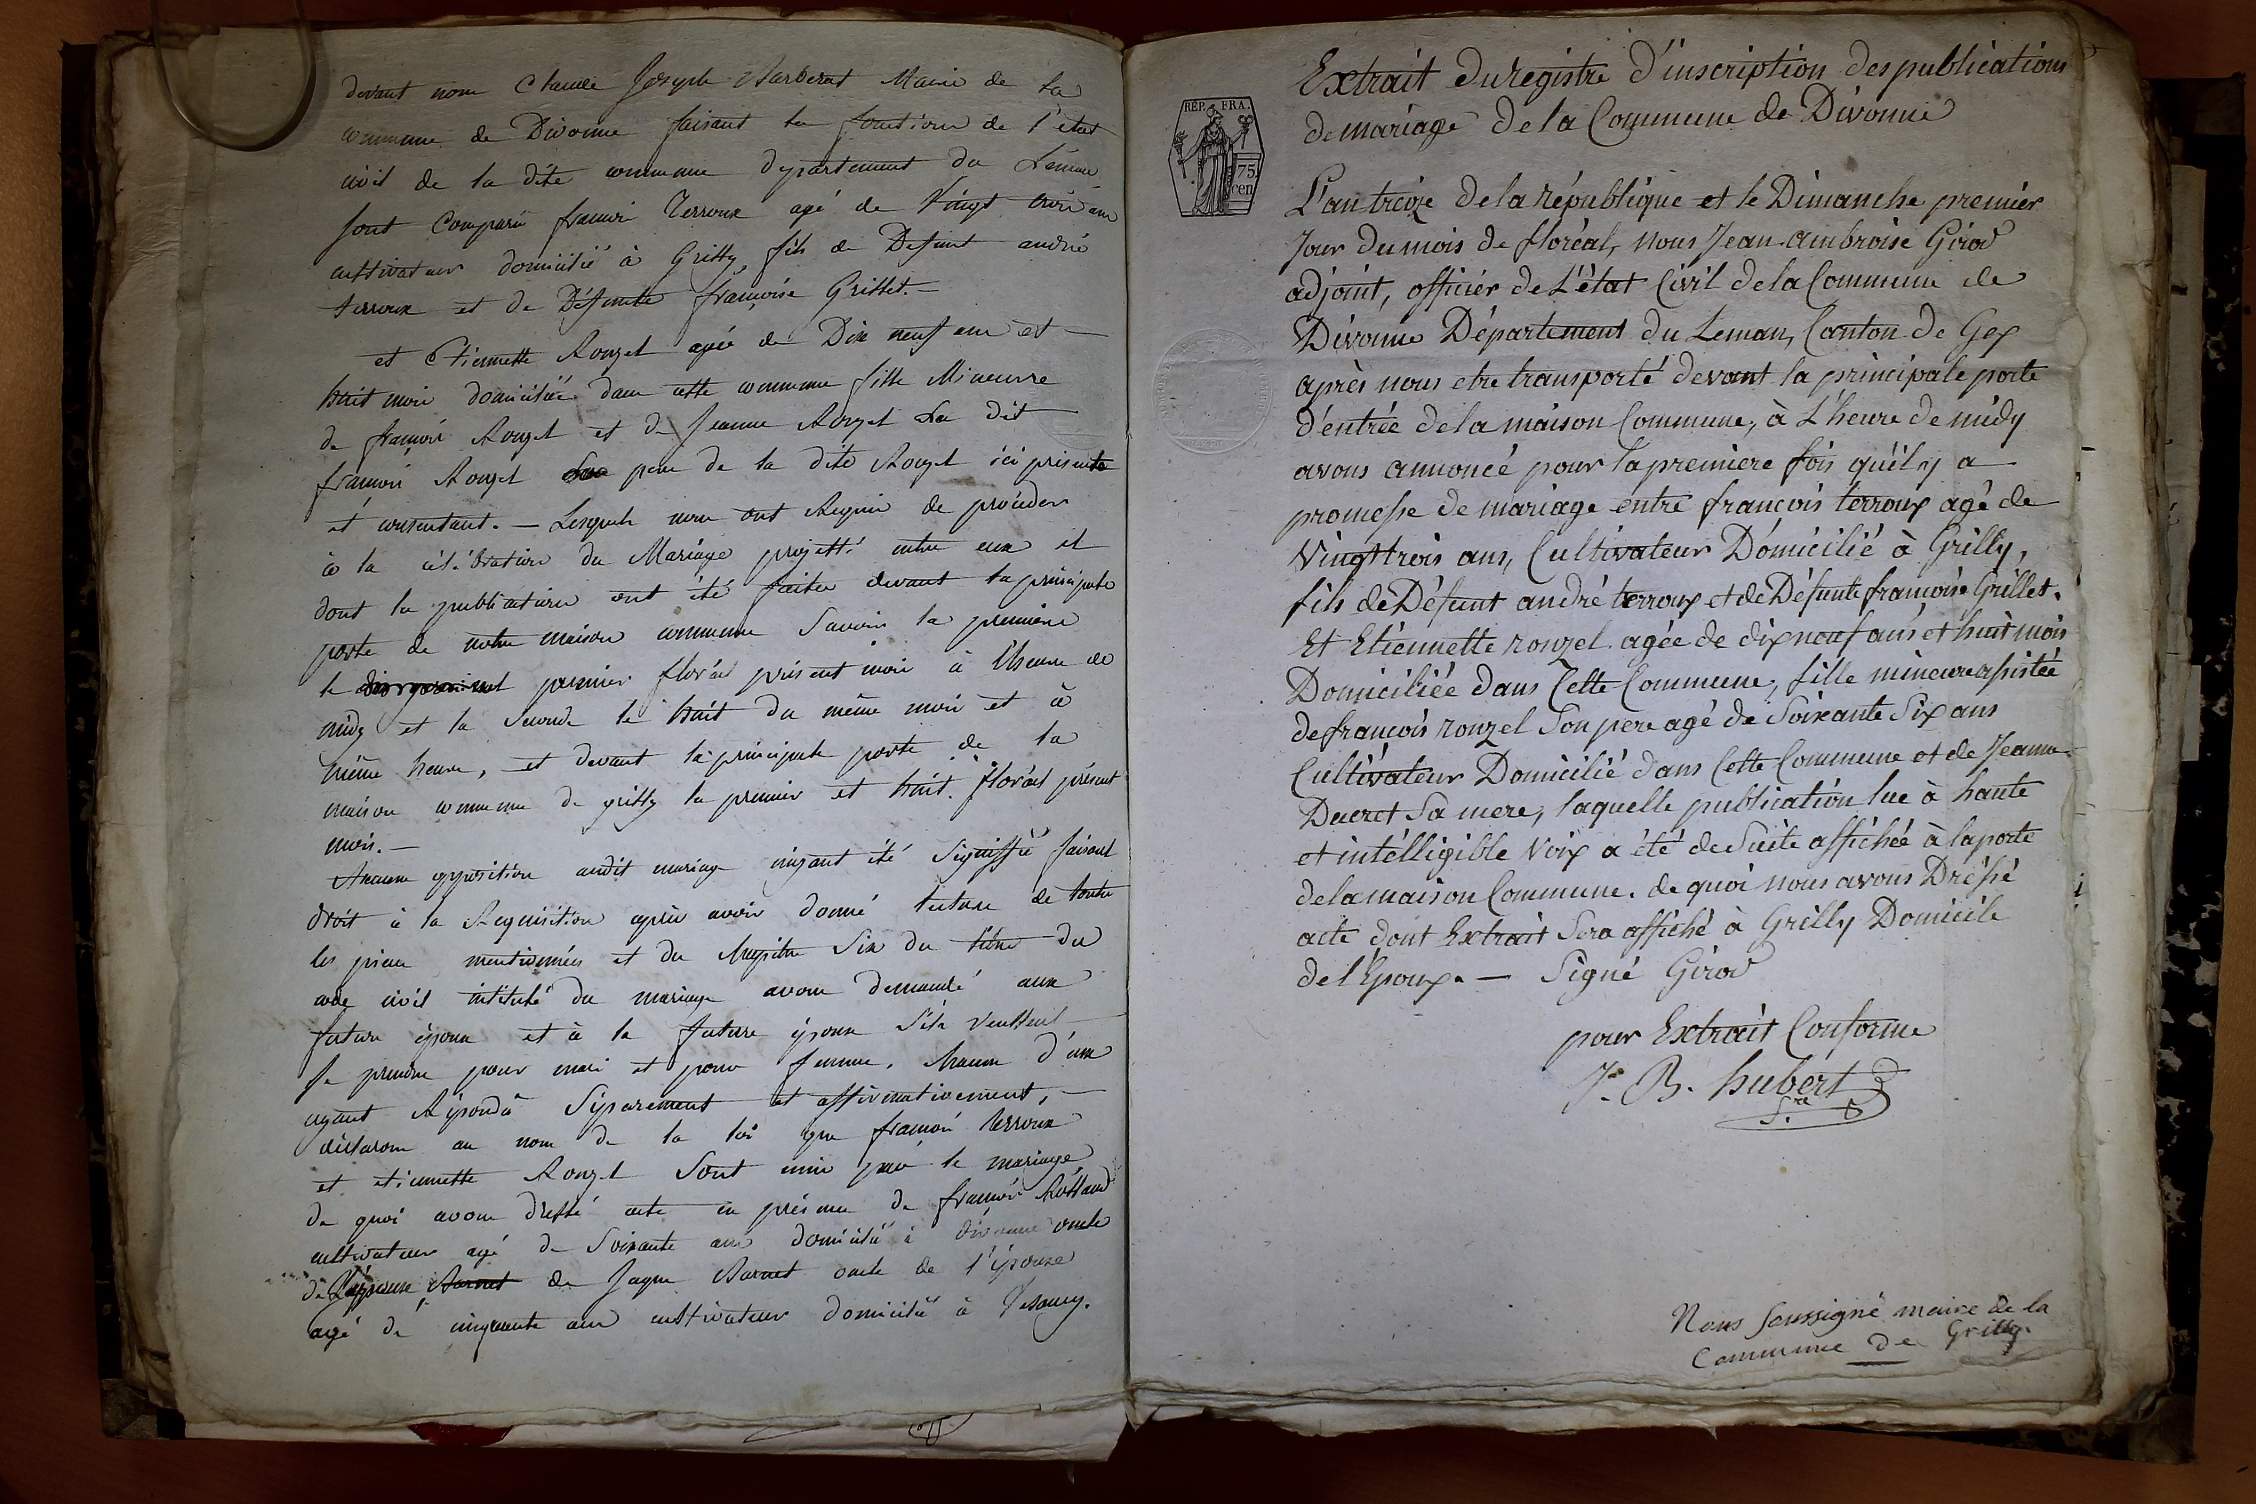 devant nous Claude Joseph Barberat Maire de la
commune de Divonne faisant les fonctions de l'état
civil de la dite commune département du Léman
sont comparu françois Terroux agé de Vingt trois ans
cultivateur domicilié à Grilly fils de Defunt andré
terroux et de Défunte françoise Grillet.—
et Etiennette Rouzel agée de Dix neuf ans et
huit mois domiciliée dans cette commune fille Mineure
de françois Rouzel et de Jeanne Rouzel Le dit
françois Rouzel pere de la dite Rouzel ici présente
et consentant. — Lesquels nous ont Requis de procéder
à la célébration du Mariage projetté entre eux et
dont les publications ont été faites devant la principale
porte de notre maison commune Savoir la premiere
le premier floréal présent mois à l'heure de
midy et la Seconde le huit du même mois et à
même heure, et devant la principale porte de la
maison commune de grilly les premier et huit floréal présent
mois.—
Aucune opposition audit mariage n'ayant été Signiffié faisant
droit à la Requisition après avoir donné lecture de toutes
les pieces mentionnées et du chapitre Six du titre du
code civil intitulé du mariage avons demandé aux
futur époux et à la future épouse S'ils veullent
se prendre pour mari et pour femme, chacun d'eux
ayant Répondû Séparement et affirmativement,
déclarons au nom de la loi que françois terroux
et etiennette Rouzel Sont unis par le mariage
de quoi avons dressé acte en présence de françois Rolland
cultivateur agé de Soixante ans domicilié à divonne oncle
de L'épouse de Jaque Barnet oncle de l'épouse
agé de cinquante ans cultivateur domicilié à Vesancy.
REP. FRA.
75
cen
Extrait du registre d'inscription des publications
de mariage de la Commune de Divonne
L'an treize de la république et le Dimanche premier
Jour du mois de floréal, nous Jean-ambroise Girod
adjoint, officier de L'état Civil de la Commune de
Divonne Département du Leman, Canton de Gex
après nous etre transporté devant la principale porte
d'entrée de la maison Commune, à L'heure de midy
avons annoncé pour la premiere fois qu'il y a
promesse de mariage entre françois terroux agé de
Vingt trois ans, Cultivateur Domicilié à Grilly,
fils de Défunt andré terroux et de Défunte françoise Grillet.
Et Etiennette rouzel agée de dix neuf ans et huit mois
Domiciliée dans Cette Commune, fille mineure assistée
de françois rouzel Son pere agé de Soixante Six ans
Cultivateur Domicilié dans Cette Commune et de Jeanne
Ducret Sa mere, laquelle publication lue à haute
et intélligible Voix a été de Suite affichée à la porte
de la maison Commune. de quoi nous avons Dréssé
acte dont Extrait Sera affiché à Grilly Domicile
de l'Epoux. — Signé Girod
pour Extrait Conforme
J. B. hubert
S.re
Nous soussigné maire de la
Commune de Grilly.